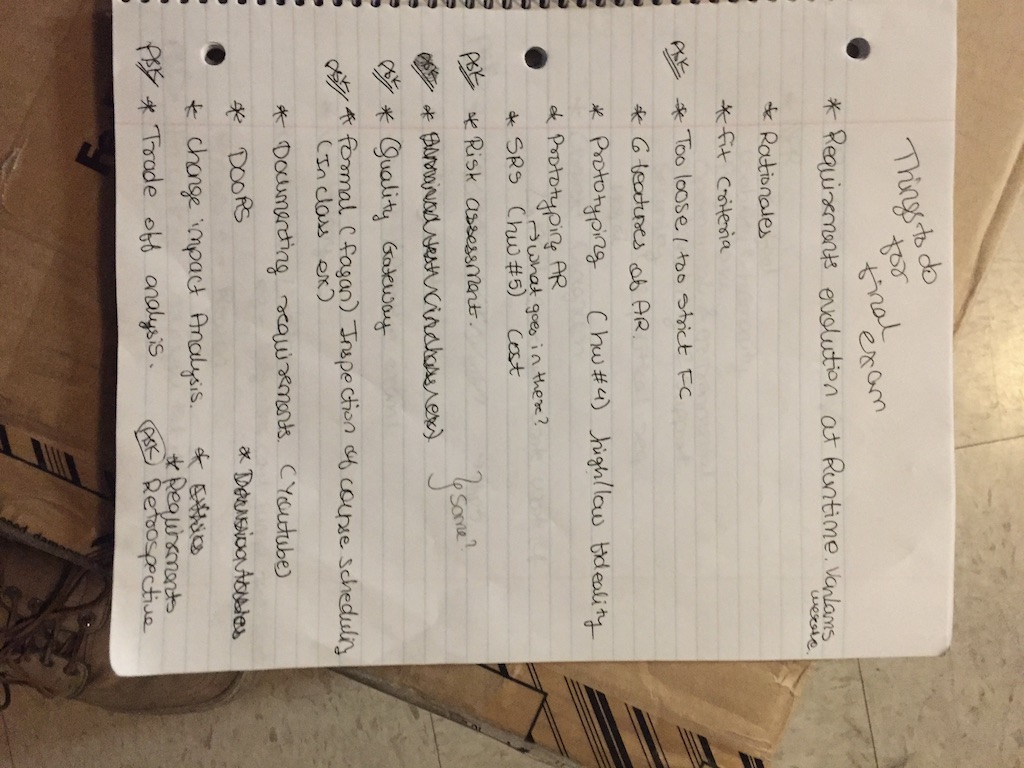 Things to do
for
final exam
* Requirements evolution at Runtime.
* Rationales
* fit criteria
* Too loose / too strict FC
* 6 features of AR.
* Prototyping (hw #4) high/low fideality
* Prototyping AR
↳ what goes in there?
* SRS (hw #5) Cost
* Risk assessment.
} same?
* Quality Gateway
* formal (fagan) Inspection of course scheduling
(In class ex)
* Documenting requirements (Youtube)
* DOORS
* change impact Analysis. * Ethics
* Requirements
* Trade off analysis. Retrospective